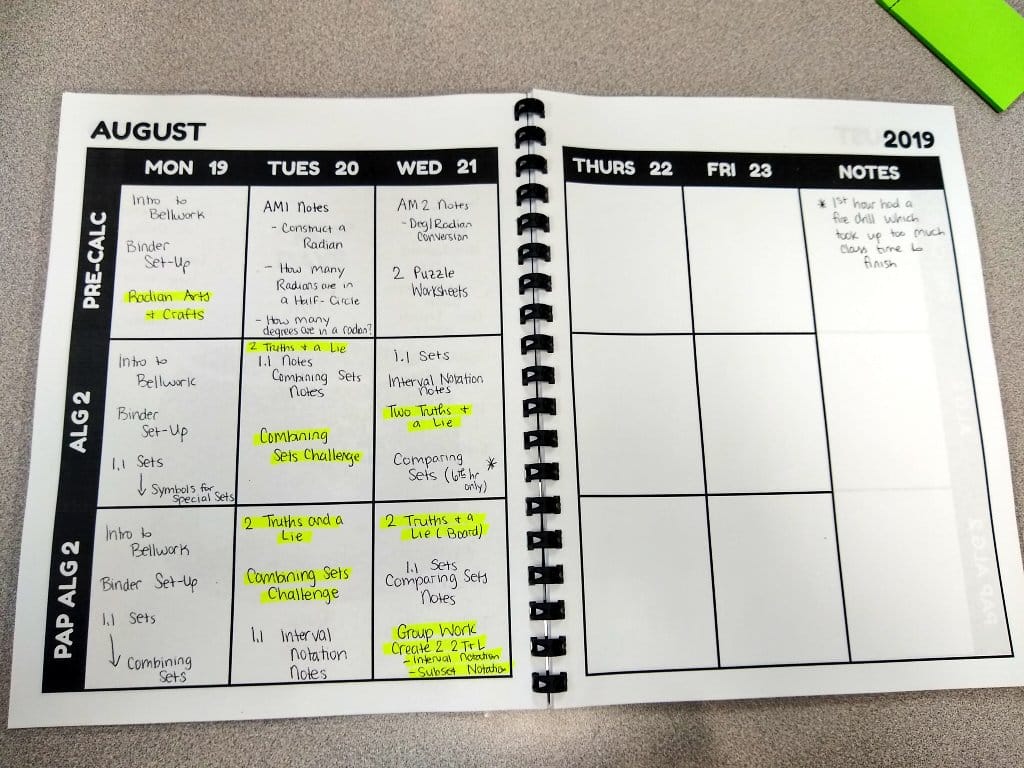 AUGUST
2019
MON 19
TUES 20
WED 21
THURS 22
FRI 23
NOTES
PRE-CALC
Intro to
Bellwork
Binder
Set-Up
Radian Arts
+ Crafts
AM1 Notes
- Construct a
Radian
- How many
Radians are in
a Half-Circle
- How many
degrees are in a radian?
AM 2 Notes
- Deg/Radian
Conversion
2 Puzzle
Worksheets
* 1st hour had a
fire drill which
took up too much
class time to
finish
ALG 2
Intro to
Bellwork
Binder
Set-Up
1.1 Sets
↓ Symbols for
Special Sets
2 Truths + a Lie
1.1 Notes
Combining Sets
Notes
Combining
Sets Challenge
1.1 Sets
Interval Notation
Notes
Two Truths +
a Lie
Comparing *
Sets (6th hr
only)
PAP ALG 2
Intro to
Bellwork
Binder Set-Up
1.1 Sets
↓ Combining
Sets
2 Truths and a
Lie
Combining Sets
Challenge
1.1 Interval
Notation
Notes
2 Truths + a
Lie (Board)
1.1 Sets
Comparing Sets
Notes
Group Work
Create 2 2T+L
- Interval Notation
- Subset Notation